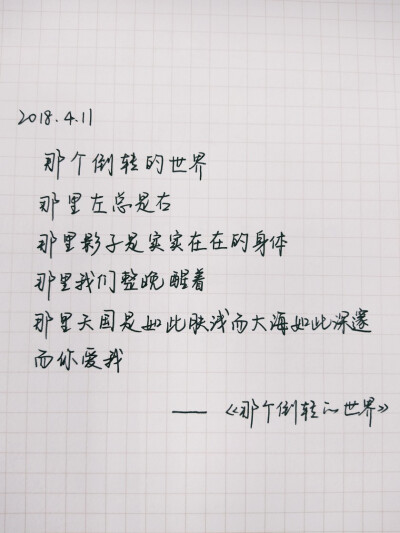 2018.4.11
那个倒转的世界
那里左总是右
那里影子是实实在在的身体
那里我们整晚醒着
那里天国是如此肤浅而大海如此深邃
而你爱我
——《那个倒转的世界》